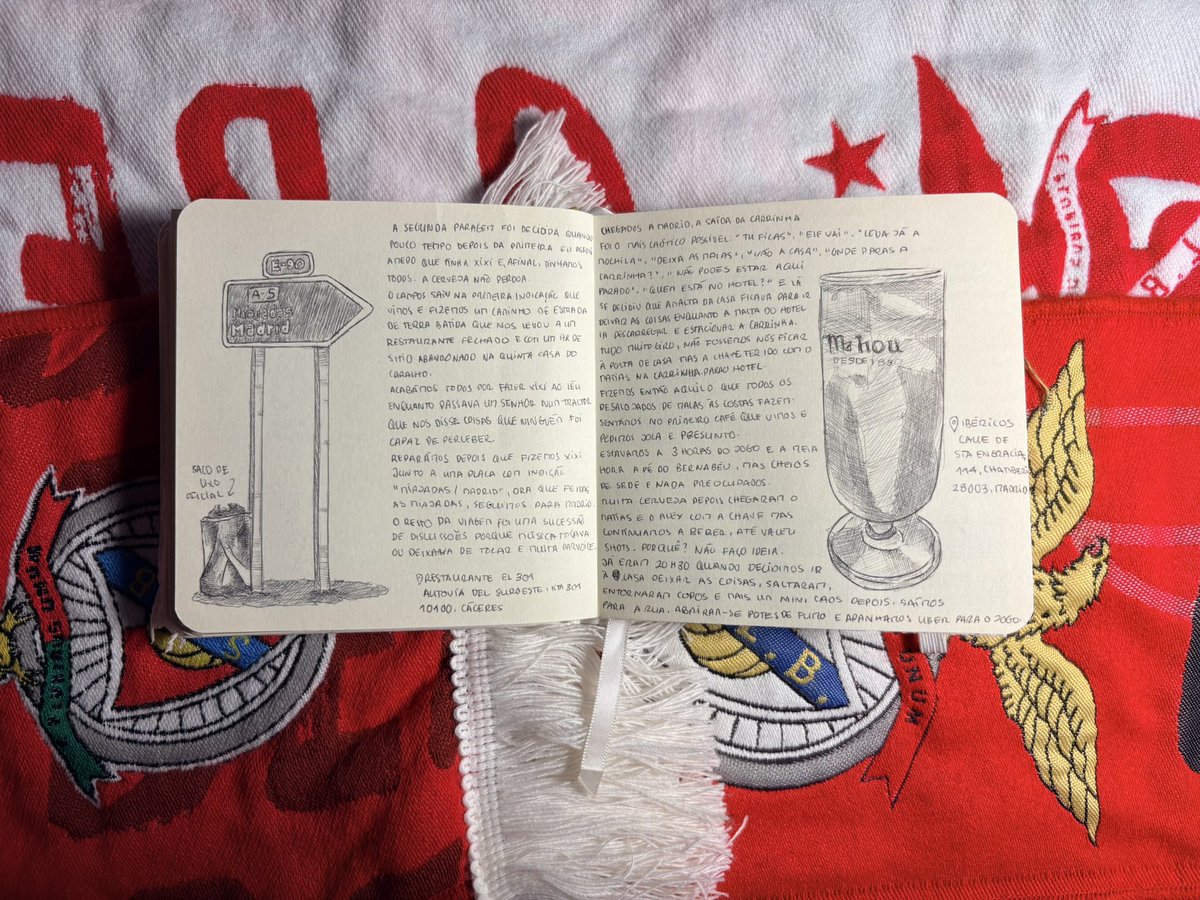 E-90
A-5
Miajadas
Madrid
SACO DE
USO
OFICIAL
A SEGUNDA PARAGEM FOI DECIDIDA QUANDO
POUCO TEMPO DEPOIS DA PRIMEIRA EU
ATERO QUE TINHA XIXI E, AFINAL, TÍNHAMOS
TODOS. A CERVEJA NÃO PERDOA.
O CAMPOS SAIU NA PRIMEIRA INDICAÇÃO QUE
VIMOS E FIZEMOS UM CAMINHO DE ESTRADA
DE TERRA BATIDA QUE NOS LEVOU A UM
RESTAURANTE FECHADO E COM UM AR DE
SÍTIO ABANDONADO NA QUINTA CASA DO
CARALHO.
ACABÁMOS TODOS POR FAZER XIXI AO LÉU
ENQUANTO PASSAVA UM SENHOR NUM TRACTOR
QUE NOS DISSE COISAS QUE NINGUÉM FOI
CAPAZ DE PERCEBER.
REPARÁMOS DEPOIS QUE FIZEMOS XIXI
JUNTO A UMA PLACA COM INDICAÇÃO
"MIAJADAS/MADRID", ORA QUE FEITAS
AS MIAJADAS, SEGUIMOS PARA MADRID.
O RESTO DA VIAGEM FOI UMA SUCESSÃO
DE DISCUSSÕES PORQUE MÚSICA TOCAVA
OU DEIXAVA DE TOCAR E MUITA PARVOÍCE.
RESTAURANTE EL 301
AUTOVÍA DEL SUROESTE, KM 301
10100, CÁCERES
CHEGADOS A MADRID, A SAÍDA DA CARRINHA
FOI O MAIS CAÓTICO POSSÍVEL: "TU FICAS", "ELE VAI", "LEVA JÁ A
MOCHILA", "DEIXA AS MALAS", "VÃO A CASA", "ONDE PARAS A
CARRINHA?", "NÃO PODES ESTAR AQUI
PARADO", "QUEM ESTÁ NO HOTEL?" E LÁ
SE DECIDIU QUE A MALTA DA CASA FICAVA PARA IR
DEIXAR AS COISAS ENQUANTO A MALTA DO HOTEL
IA DESCARREGAR E ESTACIONAR A CARRINHA.
TUDO MUITO GIRO, NÃO FOSSEMOS NÓS FICAR
À PORTA DE CASA MAS A CHAVE TER IDO COM O
MATIAS NA CARRINHA PARA O HOTEL.
FIZEMOS ENTÃO AQUILO QUE TODOS OS
DESALOJADOS DE MALAS ÀS COSTAS FAZEM:
SENTÁMOS NO PRIMEIRO CAFÉ QUE VIMOS E
PEDIMOS JOLA E PRESUNTO.
ESTÁVAMOS A 3 HORAS DO JOGO E A MEIA
HORA A PÉ DO BERNABÉU, MAS CHEIOS
DE SEDE E NADA PREOCUPADOS.
MUITA CERVEJA DEPOIS CHEGARAM O
MATIAS E O ALEX COM A CHAVE MAS
CONTINUÁMOS A BEBER, ATÉ VALEU
SHOTS. PORQUÊ? NÃO FAÇO IDEIA.
JÁ ERAM 20H30 QUANDO DECIDIMOS IR
A CASA DEIXAR AS COISAS, SALTARAM,
ENTORNARAM COPOS E MAIS UM MINI, CAOS DEPOIS, SAÍMOS
PARA A RUA. ABRIRAM-SE POTES DE FUMO E APANHAMOS UBER PARA O JOGO.
Mahou
DESDE 189
IBÉRICOS
CALLE DE
STA ENGRACIA,
114, CHAMBERÍ
28003, MADRID